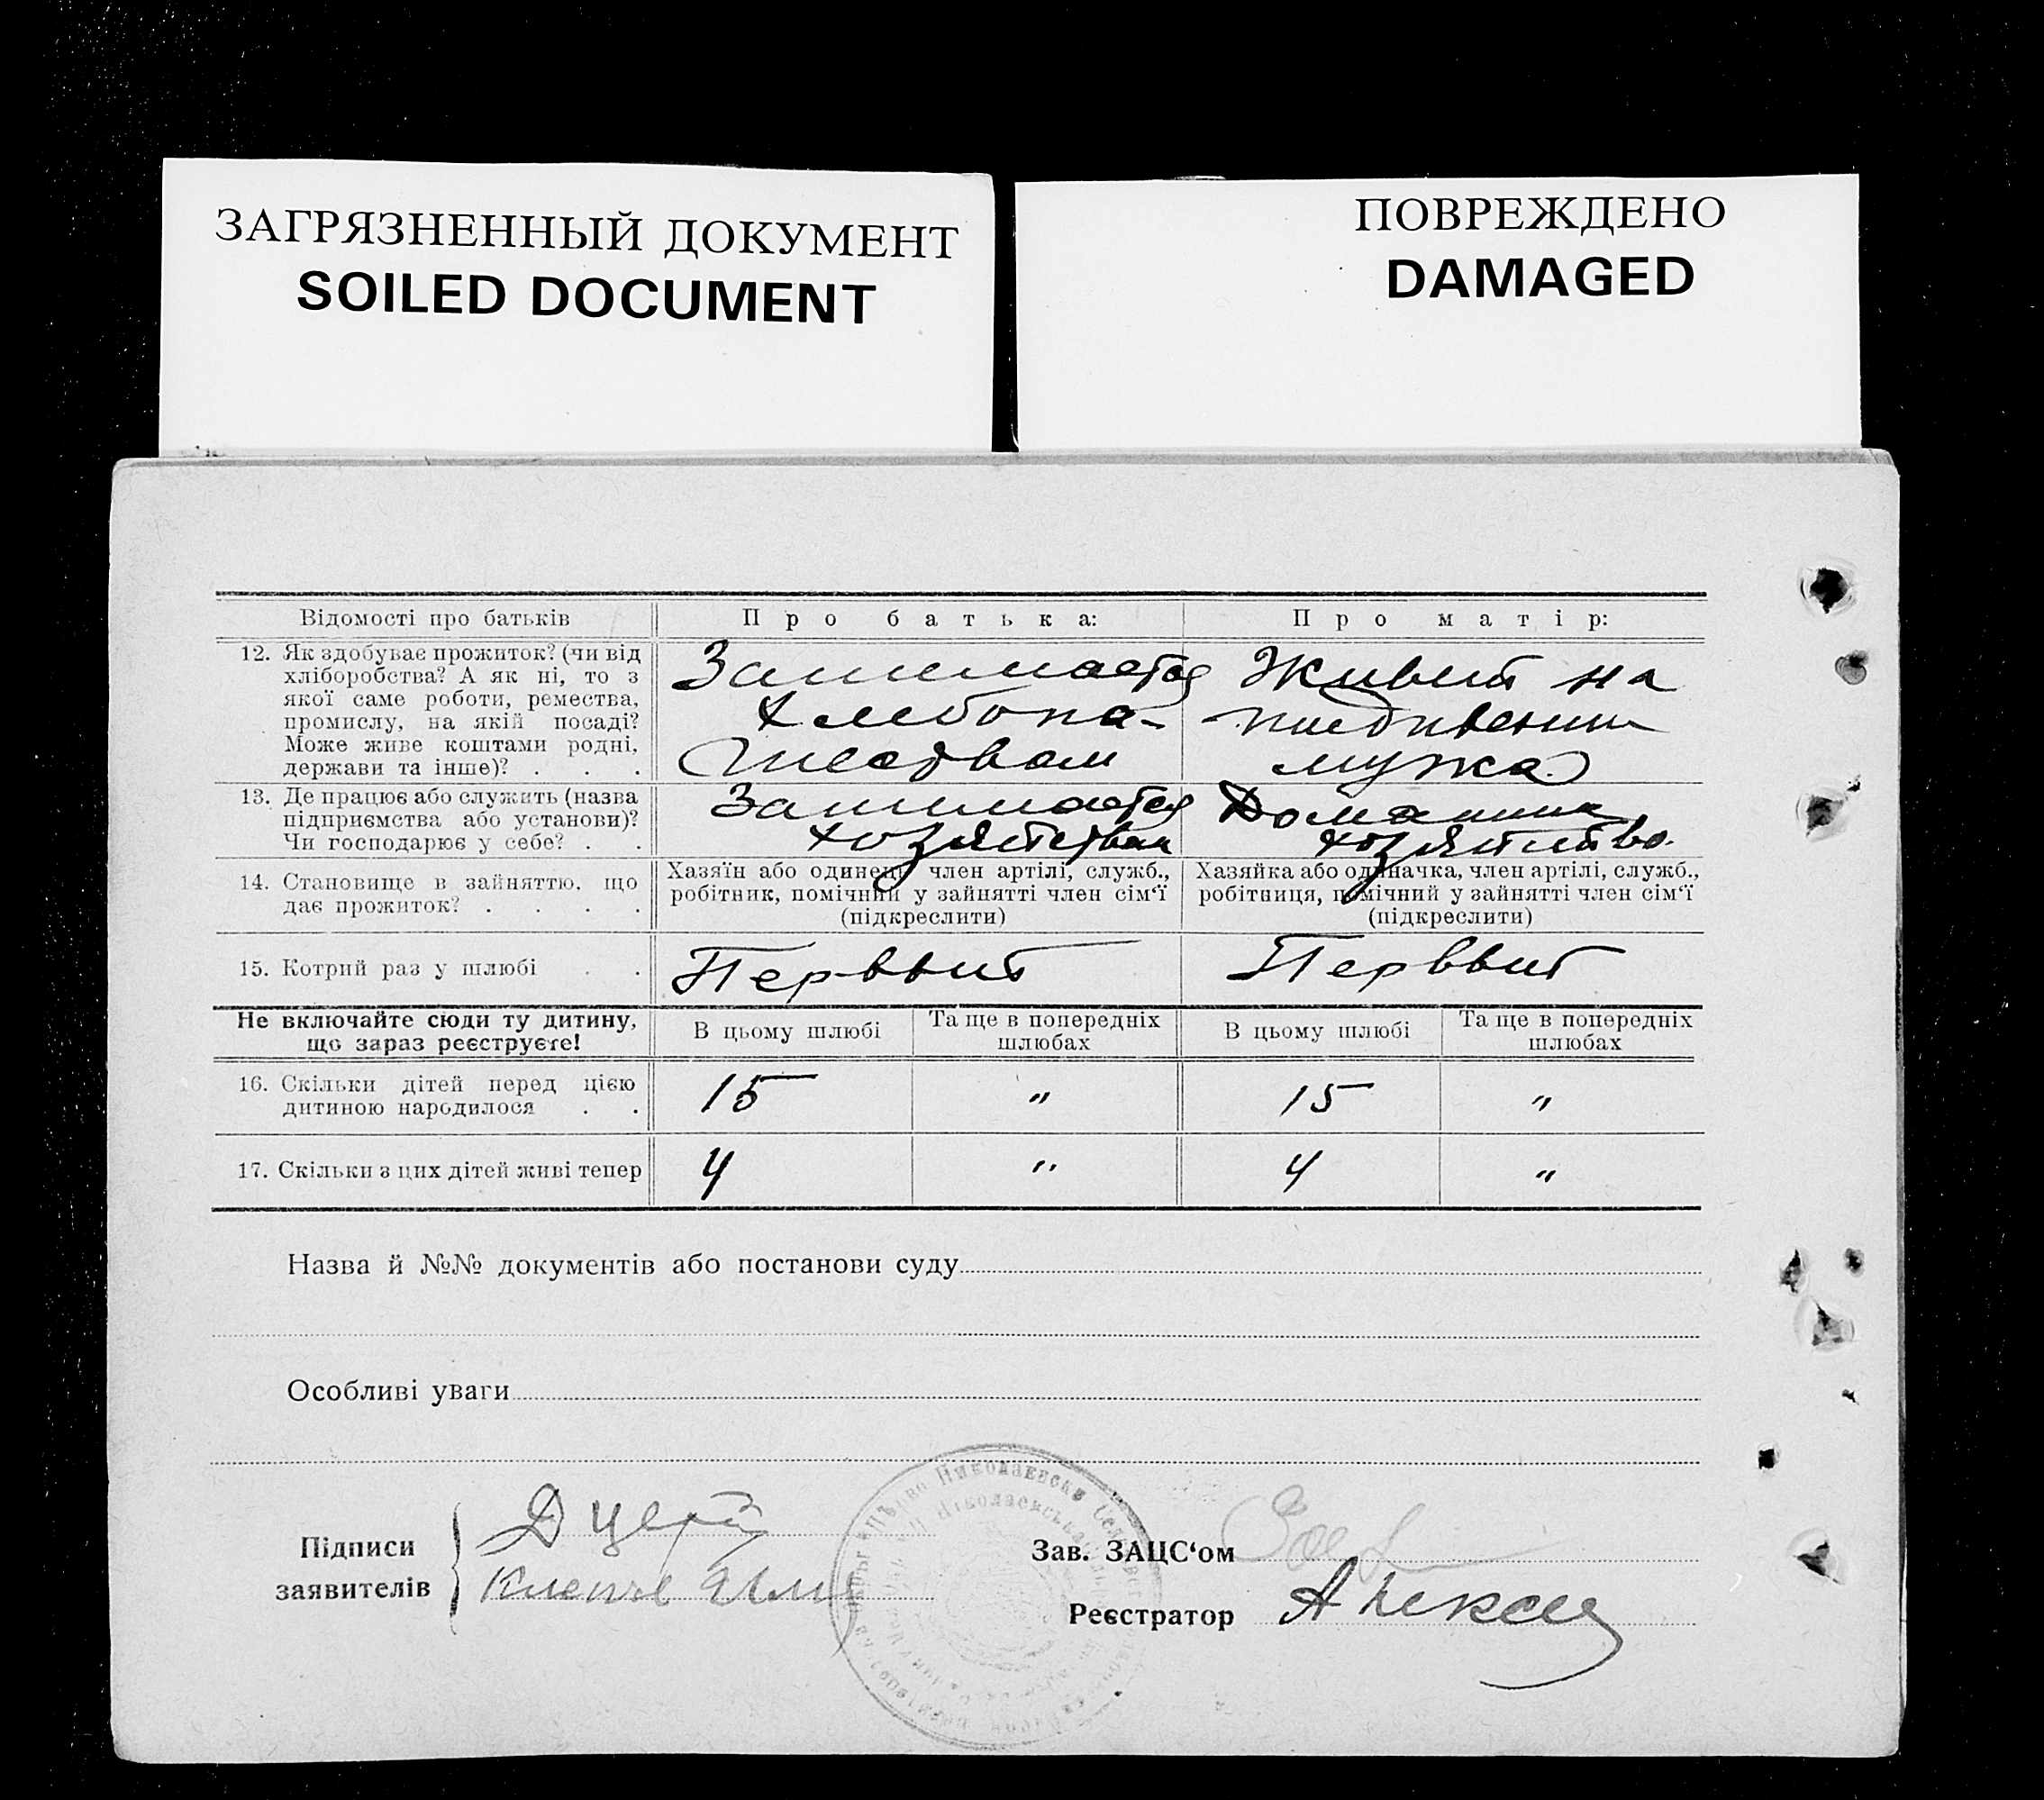 ЗАГРЯЗНЕННЫЙ ДОКУМЕНТ
SOILED DOCUMENT
ПОВРЕЖДЕНО
DAMAGED
Відомості про батьків
Про батька:
Про матір:
12. Як здобуває прожиток? (чи від
хліборобства? А як ні, то з
якої саме роботи, ремества,
промислу, на якій посаді?
Може живе коштами родні,
держави та інше)? . . .
Занимается
хлебопа-
шеством
Живет на
иждивении
мужа
13. Де працює або служить (назва
підприємства або установи)?
Чи господарює у себе? . .
Занимается
хозяйством
Домашние
хозяйство.
14. Становище в зайняттю, що
дає прожиток? . . . .
Хазяїн або одинець, член артілі, служб.,
робітник, помічний у зайнятті член сім'ї
(підкреслити)
Хазяйка або одиначка, член артілі, служб.,
робітниця, помічний у зайнятті член сім'ї
(підкреслити)
15. Котрий раз у шлюбі . .
Первый
Первый
Не включайте сюди ту дитину,
що зараз реєструєте!
В цьому шлюбі
Та ще в попередніх
шлюбах
В цьому шлюбі
Та ще в попередніх
шлюбах
16. Скільки дітей перед цією
дитиною народилося . .
15 " 15 "
17. Скільки з цих дітей живі тепер
4 " 4 "
Назва й №№ документів або постанови суду
Особливі уваги
Підписи
заявителів
Зав. ЗАЦС'ом
Реєстратор